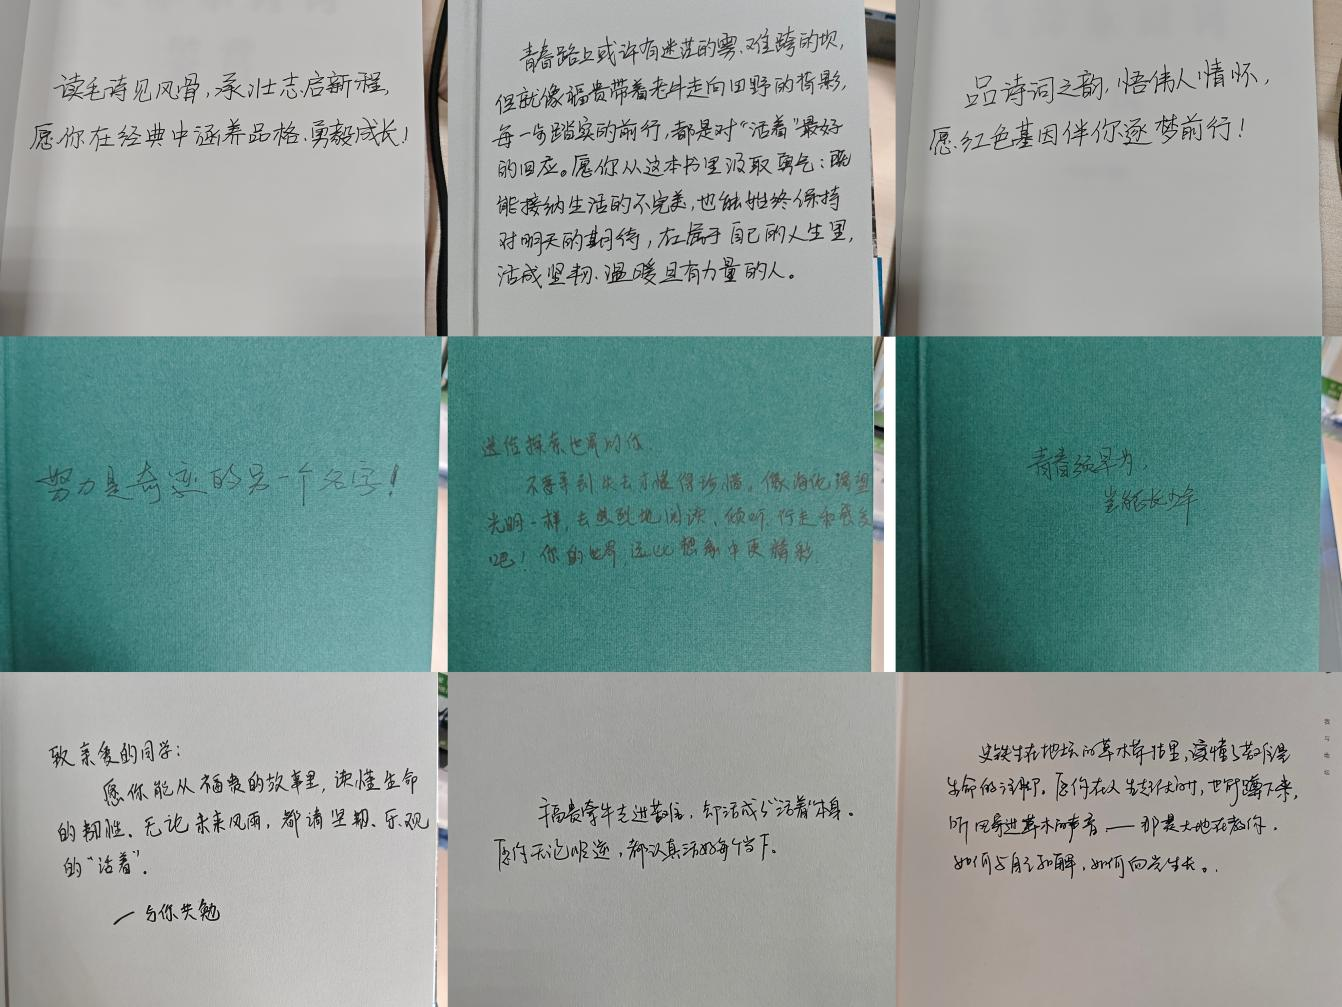 读毛诗见风骨,承壮志启新程,
愿你在经典中涵养品格、勇毅成长!
青春路上或许有迷茫的雾、难跨的坎,
但就像福贵带着老牛走向田野的背影,
每一步踏实的前行,都是对“活着”最好
的回应。愿你从这本书里汲取勇气:既
能接纳生活的不完美,也能始终保持
对明天的期待,在属于自己的人生里,
活成坚韧、温暖且有力量的人。
品诗词之韵,悟伟人情怀,
愿红色基因伴你逐梦前行!
努力是奇迹的另一个名字!
送给探索世界的你
不要等到失去才懂得珍惜。像海伦渴望
光明一样,去热烈地阅读、倾听、行走和感受
吧!你的世界,远比想象中更精彩
青春须早为,
岂能长少年
致亲爱的同学:
愿你能从福贵的故事里,读懂生命
的韧性。无论未来风雨,都请坚韧、乐观
的“活着”。
一与你共勉
福贵牵牛走进黄昏,却活成了“活着”本身。
愿你无论顺逆,都认真活好每个当下。
史铁生在地坛的草木荣枯里,读懂了苦难是
生命的注脚。愿你在人生赶仕时,也可蹲下来,
听风穿过草木的声音——那是大地在教你,
如何与自己和解,如何向光生长。
我与地坛